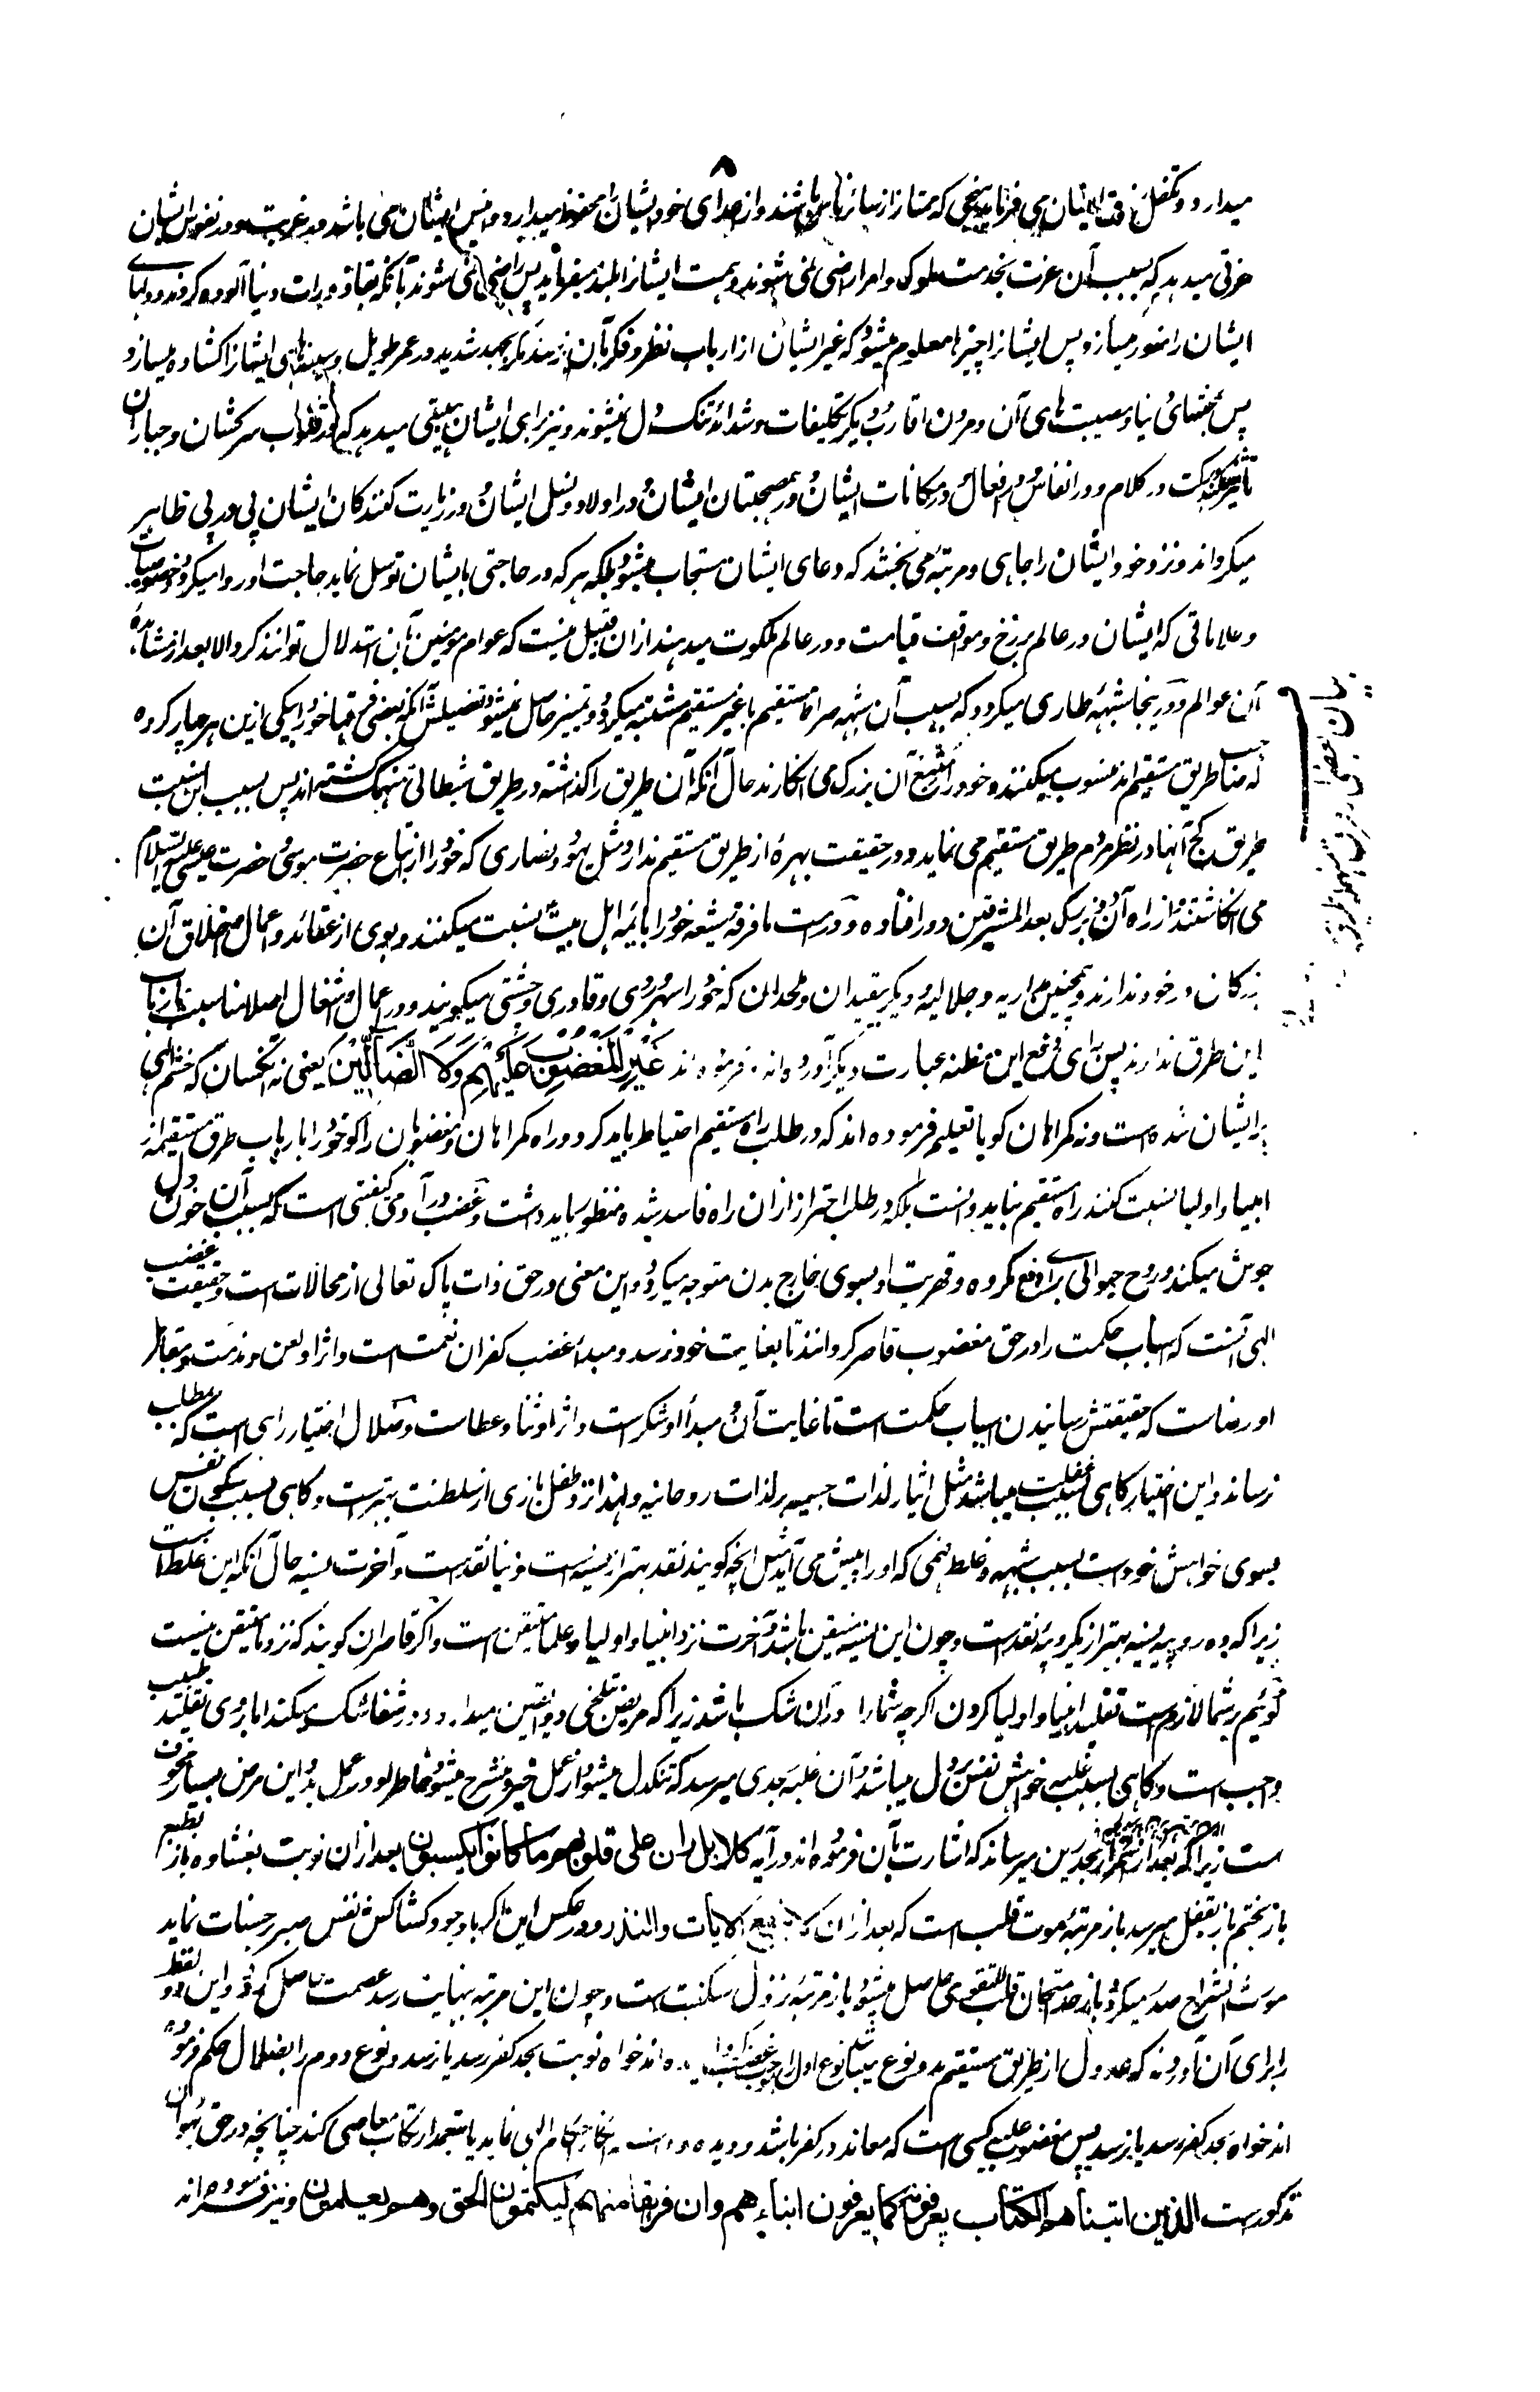 ۸
میدارد و تکفل رزق ایشان می فرماید بنهجی که ممتاز از سائر ناس باشند و از اعدای خود ایشان را محفوظ میدارد و انیس ایشان می باشد در غربت و در نفوس ایشان
عزتی میدهد که بسبب آن عزت بخدمت ملوک و امرا راضی نمی شوند و همت ایشانرا بلند میفرماید پس راضی نمی شوند بآنکه بقاذورات دنیا آلوده گردند و دلهای
ایشان را منور میسازد پس ایشانرا چیزها معلوم میشود که غیر ایشان از ارباب نظر و فکر بآن نرسند مگر بجهد شدید و در عمر طویل و سینهای ایشانرا کشاده میسازد
پس بمحنتهای دنیا و مصیبت های آن و مردن اقارب و دیگر تکلیفات و شدائد تنگ دل نمیشوند و نیز برای ایشان هیبتی میدهد که در قلوب سرکشان و جباران
تاثیر میکند و برکت در کلام و در انفاس و در افعال و در مکانات ایشان و در همصحبتان ایشان و در اولاد و نسل ایشان و در زیارت کنندگان ایشان پی در پی ظاهر
میگرداند و نزد خود ایشان را جاهی و مرتبه می بخشد که دعای ایشان مستجاب میشود بلکه هر که در حاجتی بایشان توسل نماید حاجت او روا میگردد و خصوصیات
و علاماتی که ایشان در عالم برزخ و موقف قیامت و در عالم ملکوت میدهند از ان قبیل نیست که عوام مومنین بآن استدلال توانند کرد الا بعد از مشاهده
آن عوالم و درینجا شبهه طاری میگردد که بسبب آن شبهه صراط مستقیم با غیر مستقیم مشتبه میگردد و تمییز حاصل نمیشود تفصیلش آنکه بعضی فرقها خود را بیکی ازین هر چار گروه
که صاحب طریق مستقیم اند منسوب میکنند و خود را متبع آن بزرگ می انگارند حال آنکه آن طریق را گذاشته در طریق شیطانی منهمک گشته اند پس بسبب این نسبت
طریق کج آنها در نظر مردم طریق مستقیم می نماید و در حقیقت بهره از طریق مستقیم ندارد مثل یهود و نصاری که خود را از اتباع حضرت موسی و حضرت عیسی علیهما السلام
می انگاشتند و از راه آن دو بزرگ بعد المشرقین دور افتاده و در امت ما فرقه شیعه خود را بائمه اهل بیت نسبت میکنند و بوی از عقائد و اعمال و اخلاق آن
بزرگان در خود ندارند و همچنین مداریه و جلالیه و دیگر بیقیدان و ملحدان که خود را سهروردی و قادری و چشتی میگویند و در اعمال و اشغال اصلا مناسبت با ارباب
این طرق ندارند پس برای دفع این مظنه عبارت دیگر آورده اند و فرموده اند غَیْرِ الْمَغْضُوْبِ عَلَیْهِمْ وَلَا الضَّالِّیْنَ یعنی نه آنکسان که خشم الهی
بر ایشان شده است و نه گمراهان گویا تعلیم فرموده اند که در طلب راه مستقیم احتیاط باید کرد و راه گمراهان و مغضوبان را گو خود را بارباب طرق مستقیمه از
انبیا و اولیا نسبت کنند راه مستقیم نباید دانست بلکه در طلب احتراز ازان راه فاسد شده منظور باید داشت و غضب در آدمی کیفیتی است که بسبب آن خون دل
جوش میکند و روح حیوانی برای دفع مکروه و قهریت او بسوی خارج بدن متوجه میگردد و این معنی در حق ذات پاک تعالی از محالات است و حقیقت غضب
الهی آنست که اسباب حکمت را در حق مغضوب قاصر گردانند تا بغایت خود نرسد و مبدا غضب کفران نعمت است و اثر او لعن و مذمت و مقابل
او رضاست که حقیقتش رسانیدن اسباب حکمت است تا غایت آن و مبدأ او شکر است و اثر او ثنا و عطاست و ضلال اختیار راهی است که بمطلب
نرساند و این اختیار گاهی بسبب غفلت میباشد مثل ایثار لذات جسمیه بر لذات روحانیه و لهذا نزد طفل بازی از سلطنت بهتر است و گاهی بسبب سکون نفس
بسوی خواهش خود است بسبب شبهه و غلط فهمی که او را پیش می آید مثل انچه گویند نقد بهتر از نسیه است و دنیا نقد است و آخرت نسیه حال آنکه این غلط است
زیرا که ده روپیه نسیه بهتر از یک روپیه نقد است و چون این نسیه متیقن باشد و آخرت نزد انبیا و اولیا و علما متیقن است و اگر قاصران گویند که نزد ما متیقن نیست
گوئیم بر شما لازم است تقلید انبیا و اولیا کردن اگرچه شما را در آن شک باشد زیرا که مریض تلخی دوا یقین میداند و در شفا شک میکند اما بر وی تقلید طبیب
واجب است و گاهی بسبب غلبه خواهش نفس بر دل میباشد و آن غلبه بحدی میرسد که تنگدل میشود از عمل خیر و منشرح میشود خاطر او در عمل بد و این مرض بسیار مخوف
است زیرا که بعد از استمرار بحد رین میرساند که اشارت بآن فرموده اند در آیه کلا بل ران علی قلوبهم ما کانوا یکسبون بعد ازان نوبت بغشاوه باز بطبع
باز بختم باز بقفل میرسد باز مرتبه موت قلب است که بعد ازان لا تنفع الآیات والنذر و در عکس این اگر با وجود کشاکش نفس صبر بر حسنات نماید
مورث انشراح صدر میگردد باز امتحان قلب للتقوی حاصل میشود باز مرتبه نزول سکینت است و چون این مرتبه بنهایت رسد عصمت حاصل گردد و این دو لفظ
را برای آن آوردند که عدول از طریق مستقیم بدو نوع میباشد نوع اول را بموجب غضب ... اند خواه نوبت بحد کفر رسد یا نرسد و نوع دوم را بضلال حکم فرموده
اند خواه بحد کفر رسد یا نرسد پس مغضوب علیه کسی است که معاند در کفر باشد و دیده و دانسته انکار احکام الهی نماید یا بتعمد ارتکاب معاصی کند چنانچه در حق یهودان
مذکور است الذین اتیناهم الکتاب یعرفونه کما یعرفون ابناءهم وان فریقا منهم لیکتمون الحق وهم یعلمون و نیز فرموده اند
بیان بعضی فرق